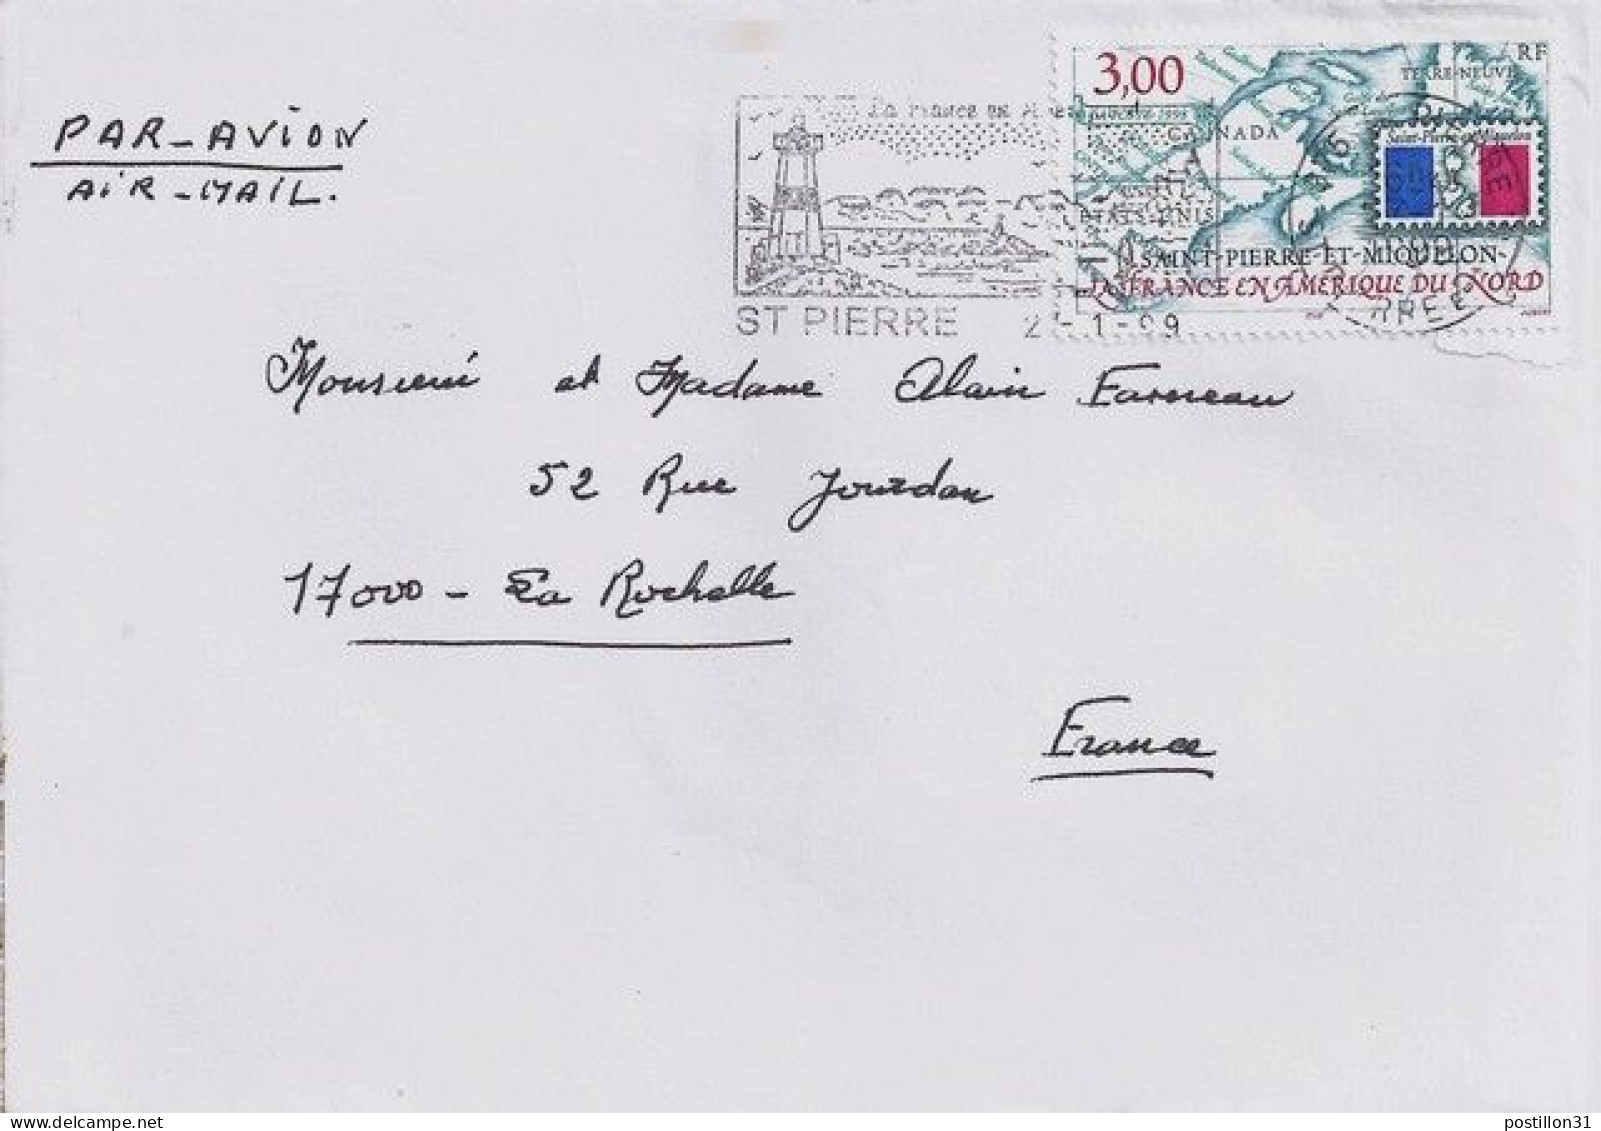 PAR-AVION
AIR-MAIL.
3,00
RF
TERRE-NEUVE
CANADA
La France en
Saint-Pierre et Miquelon
ETATS-UNIS
SAINT-PIERRE-ET-MIQUELON-
LA FRANCE EN AMÉRIQUE DU NORD
ST PIERRE
-1-99
Monsieur et Madame Alain
52 Rue Jourdan
17000 - La Rochelle
France
postillon31